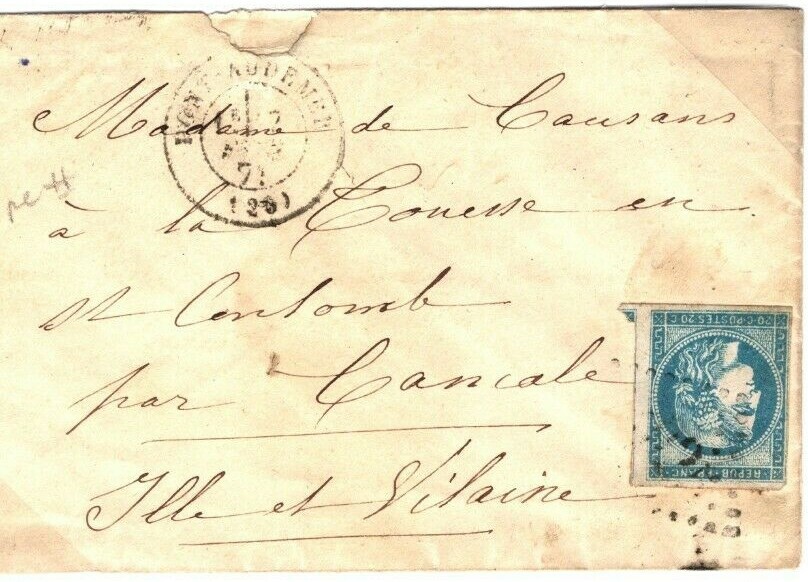 PONT-AUDEMER
71
Madame de Causans
à la Touesse en
St Coulomb
par Cancale
Ille et Vilaine
20 C · POSTES · 20 C
REPUB · FRANC